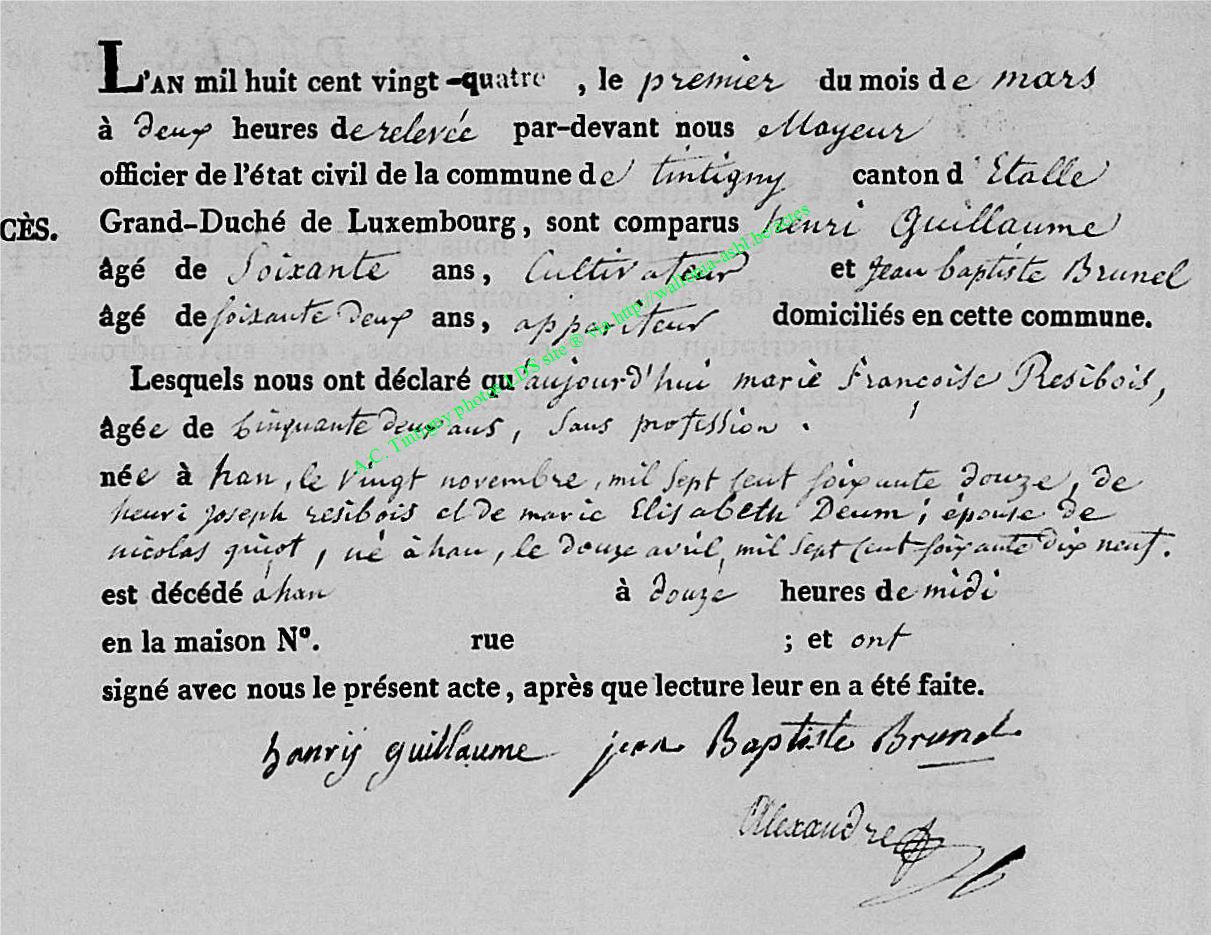 L'AN mil huit cent vingt-quatre, le premier du mois de mars
à deux heures de relevée par-devant nous Mayeur
officier de l'état civil de la commune de tintigny canton d'Etalle
CÈS. Grand-Duché de Luxembourg, sont comparus henri Guillaume
âgé de soixante ans, Cultivateur et jean baptiste Brunel
âgé de soixante deux ans, appariteur domiciliés en cette commune.
Lesquels nous ont déclaré qu'aujourd'hui marie françoise Resibois,
âgée de cinquante deux ans, sans profession.
née à han, le vingt novembre, mil sept cent soixante douze, de
henri joseph resibois et de marie Elisabeth Deum; épouse de
nicolas guiot, né à han, le douze avril, mil sept cent soixante dix neuf.
est décédé à han à douze heures de midi
en la maison N°. rue ; et ont
signé avec nous le présent acte, après que lecture leur en a été faite.
hanrij guillaume jean Baptiste Brunel
Alexandre
A.C. Tintigny photos LDS site ® via http://wallonia-asbl.be/actes